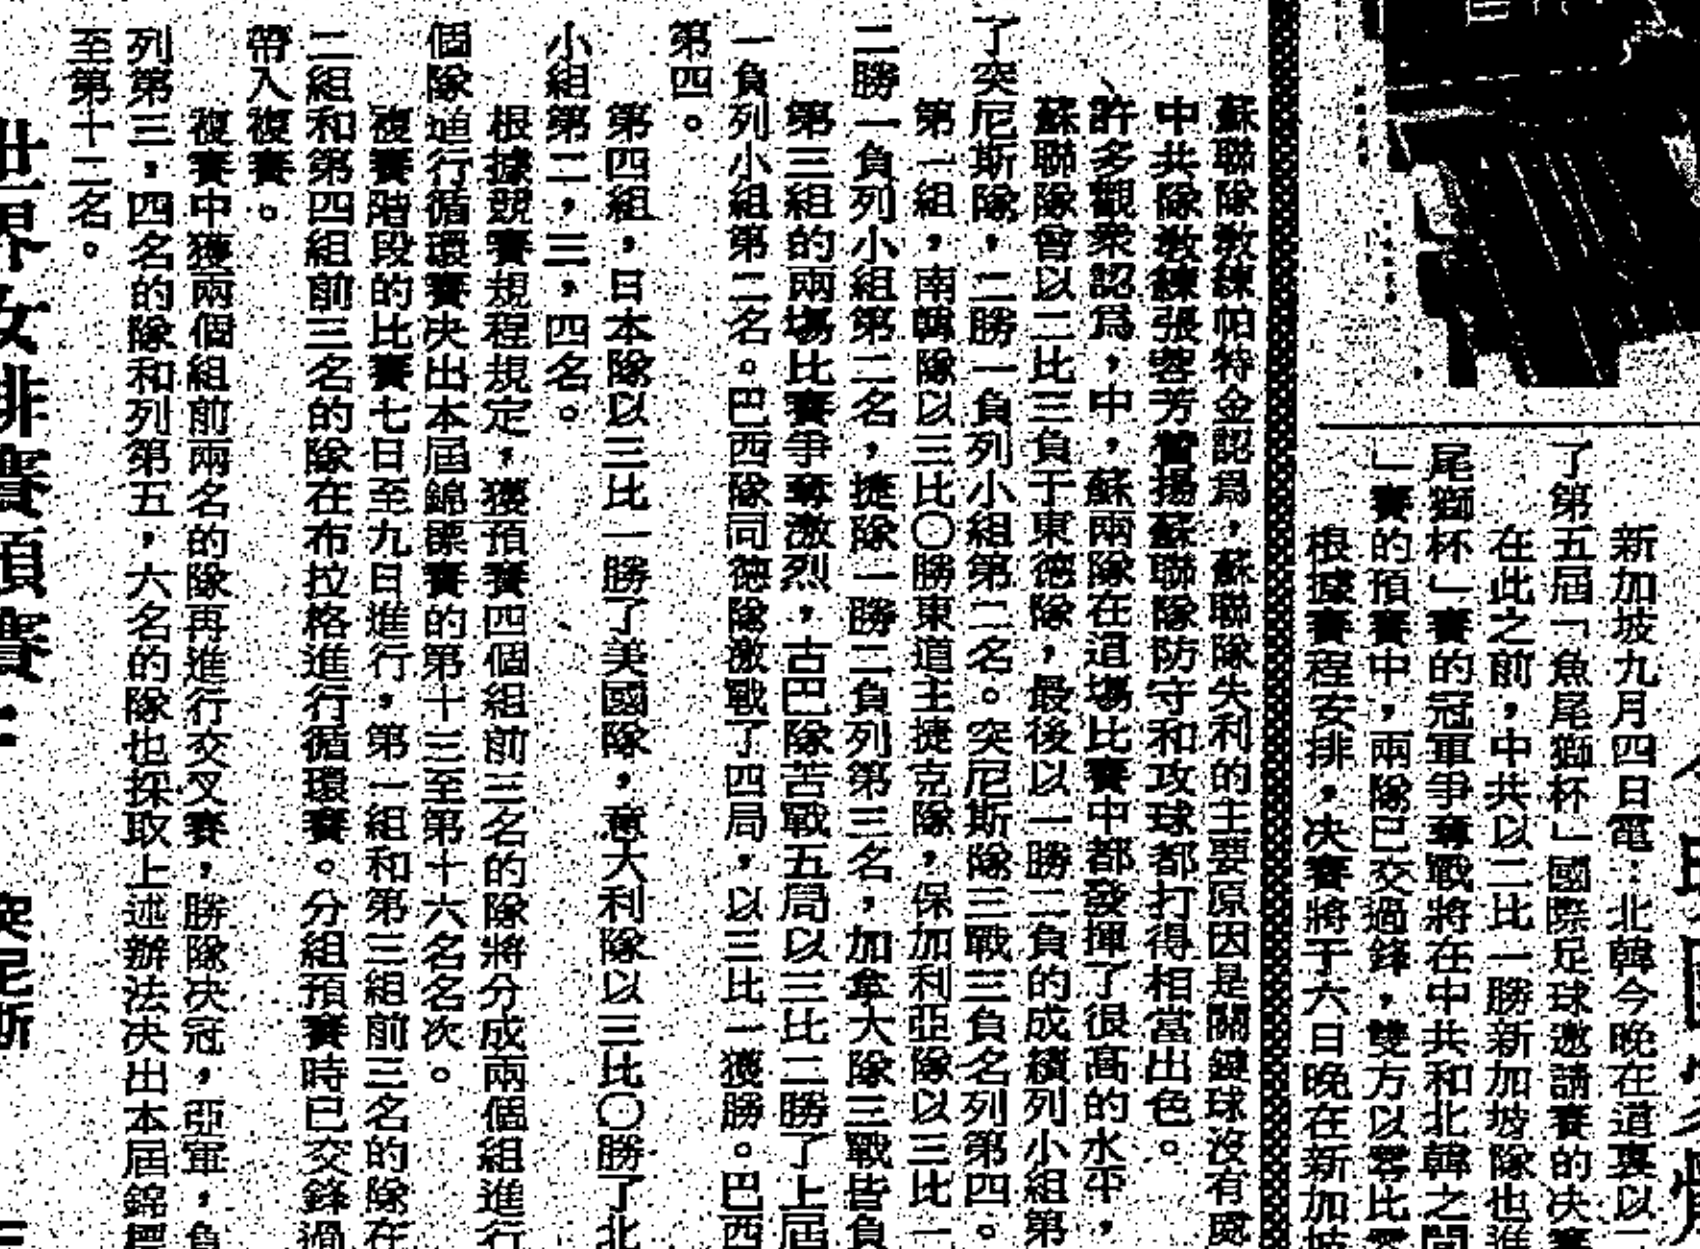 新加坡九月四日電：北韓今晚在這裏以二
了第五屆「魚尾獅杯」國際足球邀請賽的决賽
在此之前，中共以二比一勝新加坡隊也進
尾獅杯」賽的冠軍爭奪戰將在中共和北韓之間
」賽的預賽中，兩隊已交過鋒，雙方以零比零
根據賽程安排，决賽將于六日晚在新加坡
蘇聯隊敎練帕特金認爲，蘇聯隊失利的主要原因是關鍵球沒有處
中共隊敎練張蓉芳贊揚蘇聯隊防守和攻球都打得相當出色。
許多觀衆認爲，中，蘇兩隊在這場比賽中都發揮了很高的水平，
蘇聯隊曾以二比三負于東德隊，最後以一勝二負的成績列小組第
了突尼斯隊，二勝一負列小組第二名。突尼斯隊三戰三負名列第四。
第二組，南韓隊以三比〇勝東道主捷克隊，保加利亞隊以三比一
二勝一負列小組第二名，捷隊一勝二負列第三名，加拿大隊三戰皆負
第三組的兩場比賽爭奪激烈，古巴隊苦戰五局以三比二勝了上屆
一負列小組第二名。巴西隊同德隊激戰了四局，以三比一獲勝。巴西
第四。
第四組，日本隊以三比一勝了美國隊，意大利隊以三比〇勝了北
小組第二，三，四名。
根據競賽規程規定，獲預賽四個組前三名的隊將分成兩個組進行
個隊進行循環賽决出本屆錦標賽的第十三至第十六名名次。
複賽階段的比賽七日至九日進行，第一組和第三組前三名的隊在
二組和第四組前三名的隊在布拉格進行循環賽。分組預賽時已交鋒過
帶入複賽。
複賽中獲兩個組前兩名的隊再進行交叉賽，勝隊决冠，亞軍，負
列第三，四名的隊和列第五，六名的隊也採取上述辦法决出本屆錦標
至第十二名。
世界女排賽預賽：
突尼斯